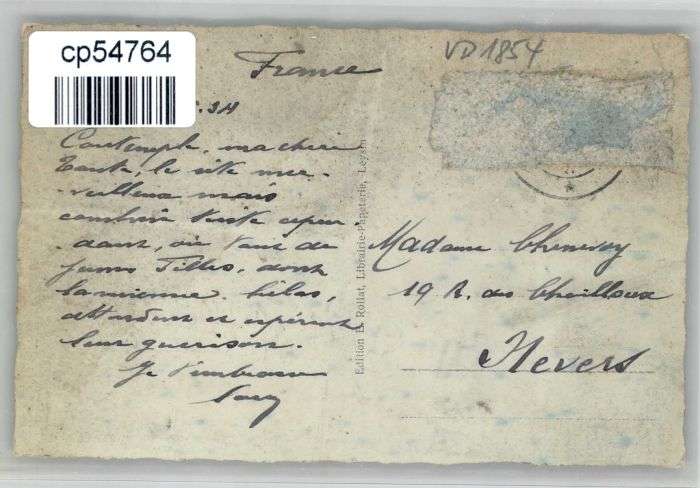 cp54764
VD 1854
France
34
Contemple, ma chère
Tante, le site mer-
-veilleux mais
combien triste cepen-
-dant, où tant de
jeunes Filles, dont
la mienne hélas,
attendent et espèrent
leur guérison.
Je t'embrasse
Edition B. Rollat, Librairie-Papeterie, Leysin
Madame
19 R. des Chailloux
Nevers